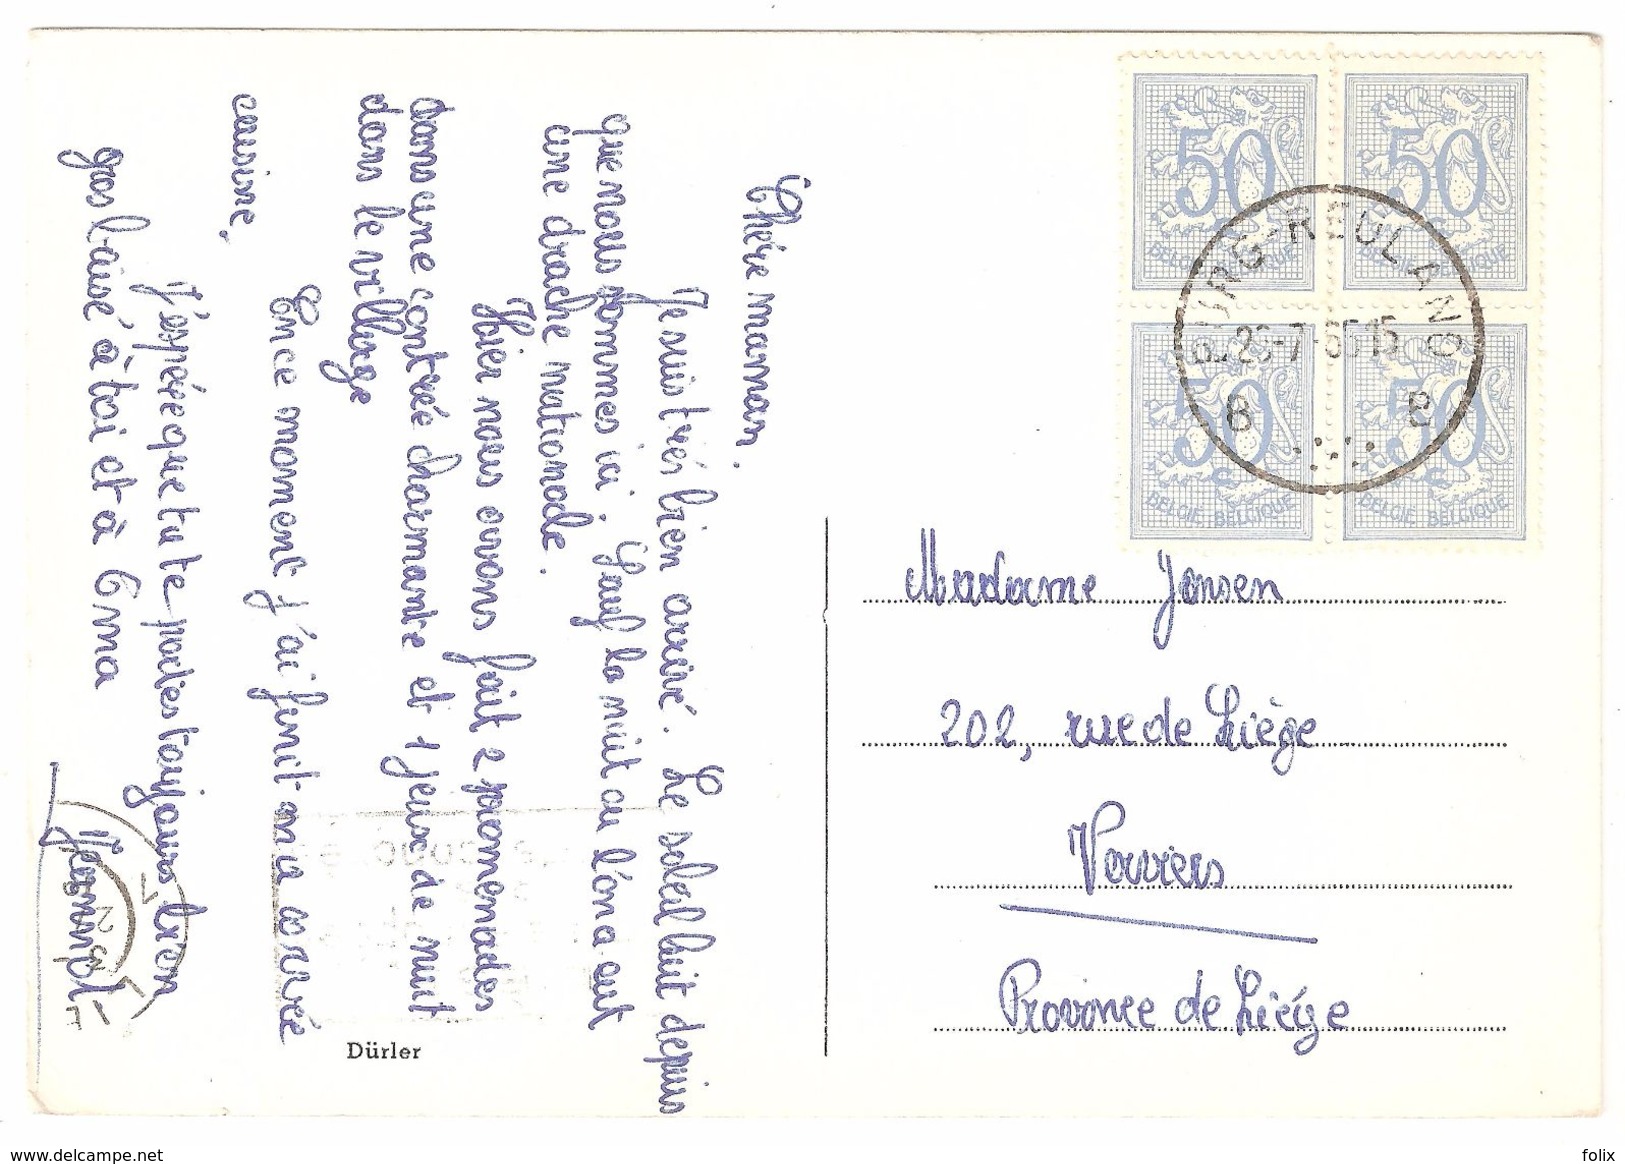 Chère maman,
Je suis très bien arrivé. Le soleil luit depuis
que nous sommes ici. Sauf la nuit ou l'on a eut
une drache nationale.
Hier nous avons fait 2 promenades
dans une contrée charmante et 1 jeu de nuit
dans le village
En ce moment j'ai finit ma corvée
cuisine.
J'espère que tu te portes toujours bien
gros baisé à toi et à bonma
Dürler
50 50
BELGIE BELGIQUE BELGIE BELGIQUE
50 50
BELGIE BELGIQUE BELGIE BELGIQUE
BURG-REULAND
B B
Madame Jansen
202, rue de Liège
Verviers
Province de Liége
delcampe.net
folix